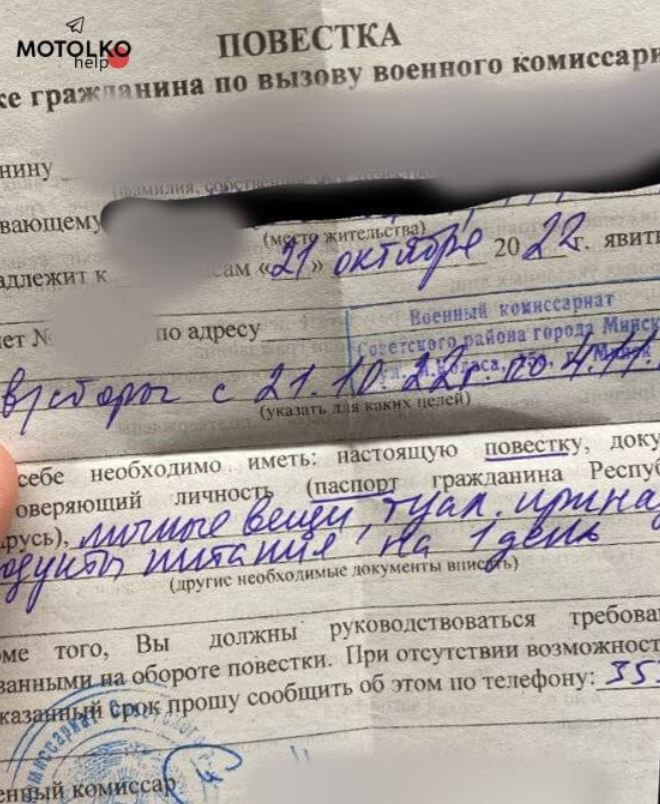 MOTOLKO
help
ПОВЕСТКА
ке гражданина по вызову военного комиссари
нину
(фамилия, собственное имя, отчество
вающему
(место жительства)
адлежит к сам «21» октября 2022 г. явити
ет № по адресу
Военный комиссариат
Советского района города Минск
в/сборы с 21.10.22г. по 4.11.
(указать для каких целей)
себе необходимо иметь: настоящую повестку, доку
оверяющий личность (паспорт гражданина Респуб
арусь), личные вещи, туал. принад
одукты питания на 1 день
(другие необходимые документы вписать)
ме того, Вы должны руководствоваться требова
занными на обороте повестки. При отсутствии возможност
казанный срок прошу сообщить об этом по телефону: 35
енный комиссар